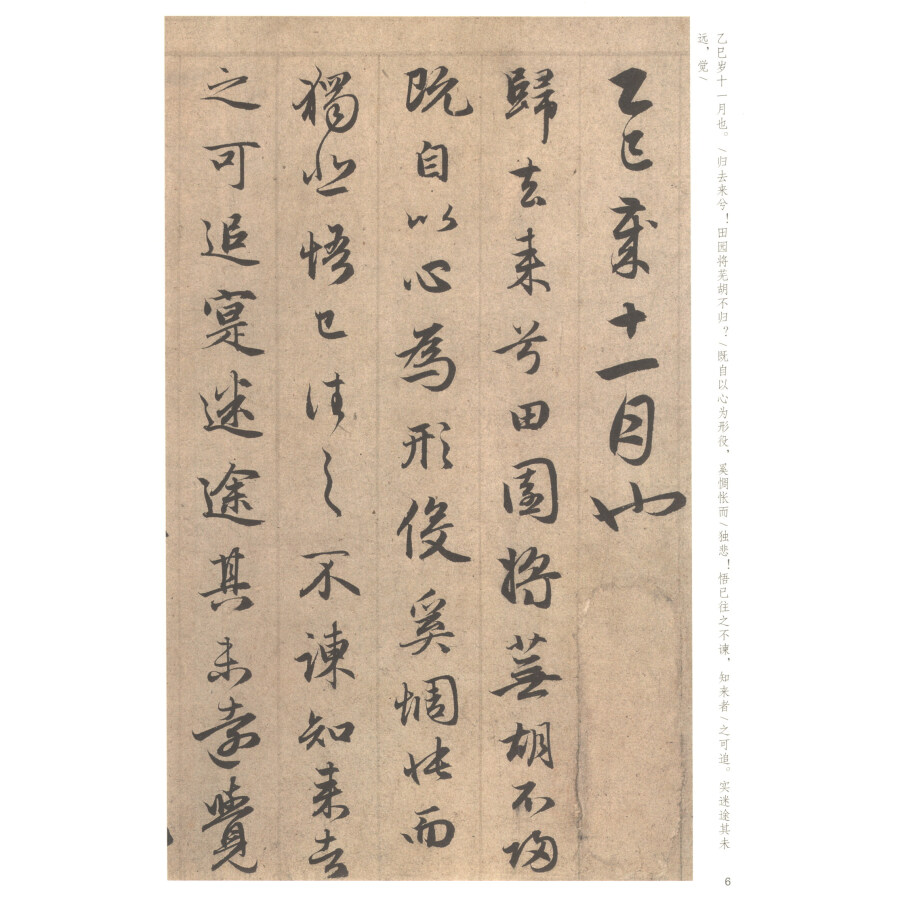 乙巳岁十一月也。\归去来兮！田园将芜胡不归？\既自以心为形役，奚惆怅而\独悲！悟已往之不谏，知来者\之可追。实迷途其未
远，觉\
乙巳歲十一月也
歸去来兮田園將蕪胡不歸
既自以心為形役奚惆悵而
獨悲悟已往之不諫知来者
之可追寔迷途其未遠覺
6